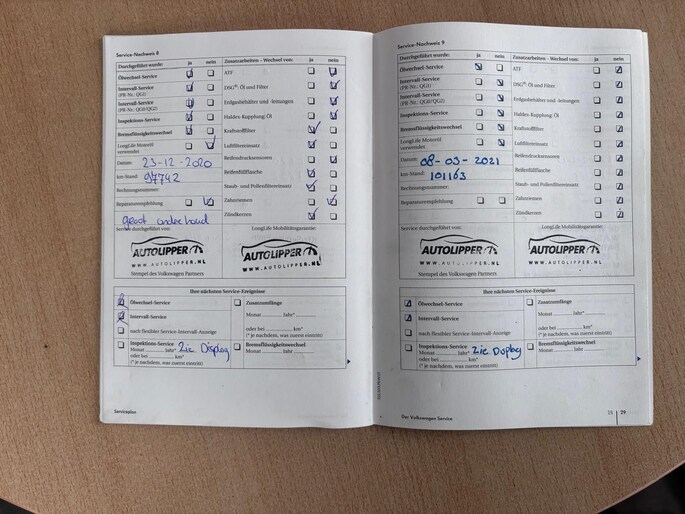 Service-Nachweis 8
Durchgeführt wurde: ja nein
Ölwechsel-Service
Intervall-Service
(PR-Nr.: QG1)
Intervall-Service
(PR-Nr.: QG0/QG2)
Inspektions-Service
Bremsflüssigkeitswechsel
LongLife Motoröl
verwendet
Datum: 23-12-2020
km-Stand: 97742
Rechnungsnummer:
Reparaturempfehlung
groot onderhoud
Service durchgeführt von:
AUTOLIPPER
WWW.AUTOLIPPER.NL
Stempel des Volkswagen Partners
Zusatzarbeiten - Wechsel von: ja nein
ATF
DSG®: Öl und Filter
Erdgasbehälter und -leitungen
Haldex-Kupplung: Öl
Kraftstofffilter
Luftfiltereinsatz
Reifendrucksensoren
Reifenfüllflasche
Staub- und Pollenfiltereinsatz
Zahnriemen
Zündkerzen
LongLife Mobilitätsgarantie:
AUTOLIPPER
WWW.AUTOLIPPER.NL
Ihre nächsten Service-Ereignisse
Ölwechsel-Service
Intervall-Service
nach flexibler Service-Intervall-Anzeige
Inspektions-Service
Monat ........ Jahr* Zie Display
oder bei ........ km*
(* je nachdem, was zuerst eintritt)
Zusatzumfänge
Monat ........ Jahr* ........
oder bei ........ km*
(* je nachdem, was zuerst eintritt)
Bremsflüssigkeitswechsel
Monat ........ Jahr ........
Serviceplan
Service-Nachweis 9
Durchgeführt wurde: ja nein
Ölwechsel-Service
Intervall-Service
(PR-Nr.: QG1)
Intervall-Service
(PR-Nr.: QG0/QG2)
Inspektions-Service
Bremsflüssigkeitswechsel
LongLife Motoröl
verwendet
Datum: 08-03-2021
km-Stand: 101163
Rechnungsnummer:
Reparaturempfehlung
Service durchgeführt von:
AUTOLIPPER
WWW.AUTOLIPPER.NL
Stempel des Volkswagen Partners
Zusatzarbeiten - Wechsel von: ja nein
ATF
DSG®: Öl und Filter
Erdgasbehälter und -leitungen
Haldex-Kupplung: Öl
Kraftstofffilter
Luftfiltereinsatz
Reifendrucksensoren
Reifenfüllflasche
Staub- und Pollenfiltereinsatz
Zahnriemen
Zündkerzen
LongLife Mobilitätsgarantie:
AUTOLIPPER
WWW.AUTOLIPPER.NL
Ihre nächsten Service-Ereignisse
Ölwechsel-Service
Intervall-Service
nach flexibler Service-Intervall-Anzeige
Inspektions-Service
Monat ........ Jahr* Zie Display
oder bei ........ km*
(* je nachdem, was zuerst eintritt)
Zusatzumfänge
Monat ........ Jahr* ........
oder bei ........ km*
(* je nachdem, was zuerst eintritt)
Bremsflüssigkeitswechsel
Monat ........ Jahr ........
Der Volkswagen Service
28 | 29